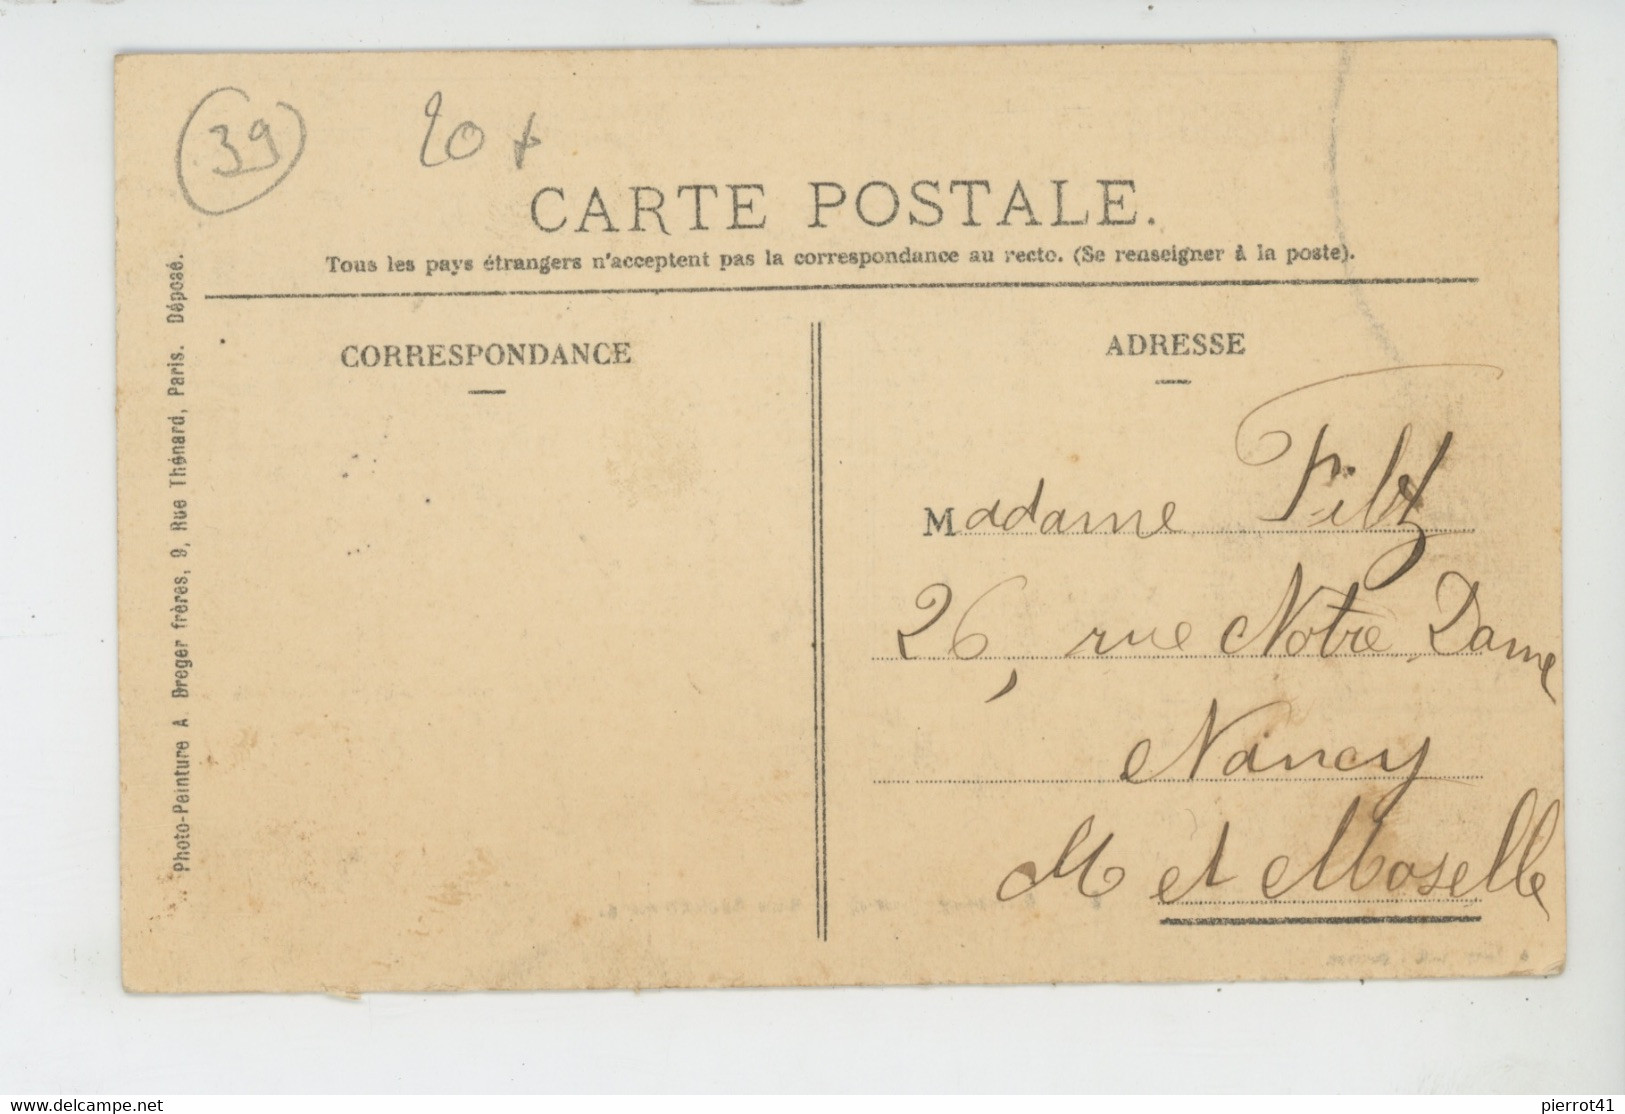 39
20 +
CARTE POSTALE.
Tous les pays étrangers n'acceptent pas la correspondance au recto. (Se renseigner à la poste).
CORRESPONDANCE
ADRESSE
Madame
26, rue Notre Dame
Nancy
M et Moselle
Photo-Peinture A Breger frères, 9, Rue Thénard, Paris. Déposé.
www.delcampe.net
pierrot41